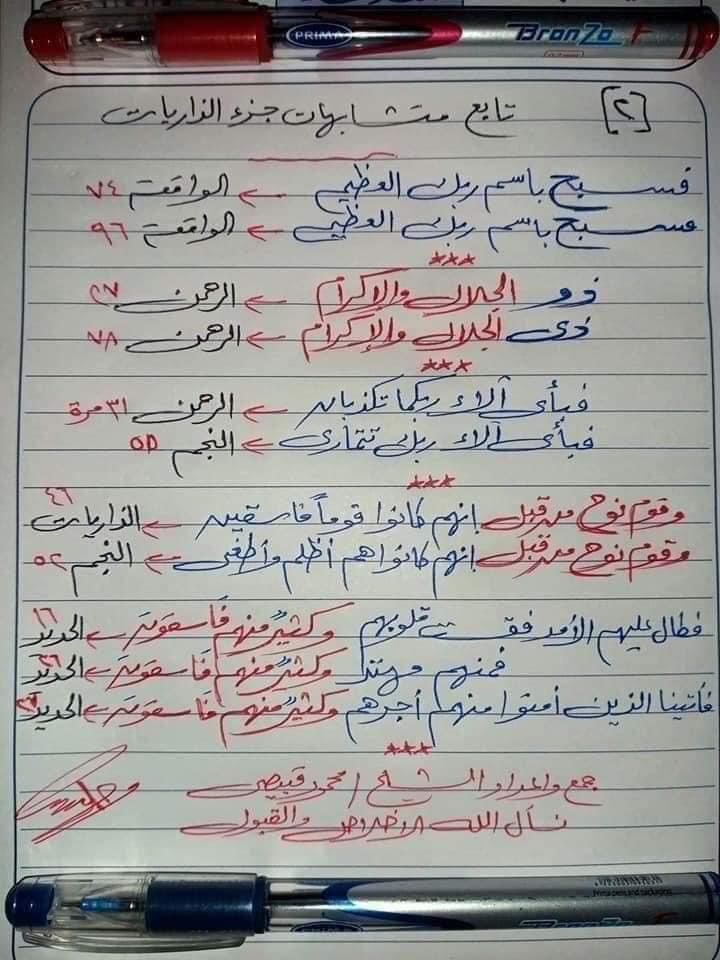 PRIMA BronZo F
[٢] تابع متشابهات جزء الذاريات
فسبح باسم ربك العظيم ← الواقعة ٧٤
فسبح باسم ربك العظيم ← الواقعة ٩٦
***
ذو الجلال والإكرام ← الرحمن ٢٧
ذى الجلال والإكرام ← الرحمن ٧٨
***
فبأى آلاء ربكما تكذبان ← الرحمن ٣١ مرة
فبأى آلاء ربك تتمارى ← النجم ٥٥
***
وقوم نوح من قبل إنهم كانوا قوماً فاسقين ← الذاريات ٤٦
وقوم نوح من قبل إنهم كانوا هم أظلم وأطغى ← النجم ٥٢
فطال عليهم الأمد فقست قلوبهم وكثيرٌ منهم فاسقون ← الحديد ١٦
فمنهم مهتد وكثيرٌ منهم فاسقون ← الحديد ٢٦
فأتينا الذين أمنوا منهم أجرهم وكثيرٌ منهم فاسقون ← الحديد ٢٧
***
جمع وإعداد الشيخ / محمود قبيصى
نسأل الله الإخلاص والقبول
BronZo F